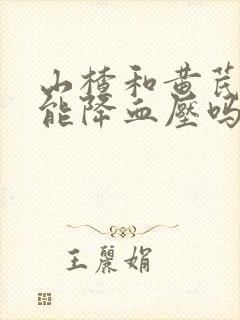 山楂和黄芪
能降血壓吗
王麗娟